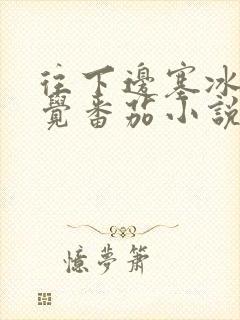 往下邊塞冰
覺番茄小說
憶夢簫